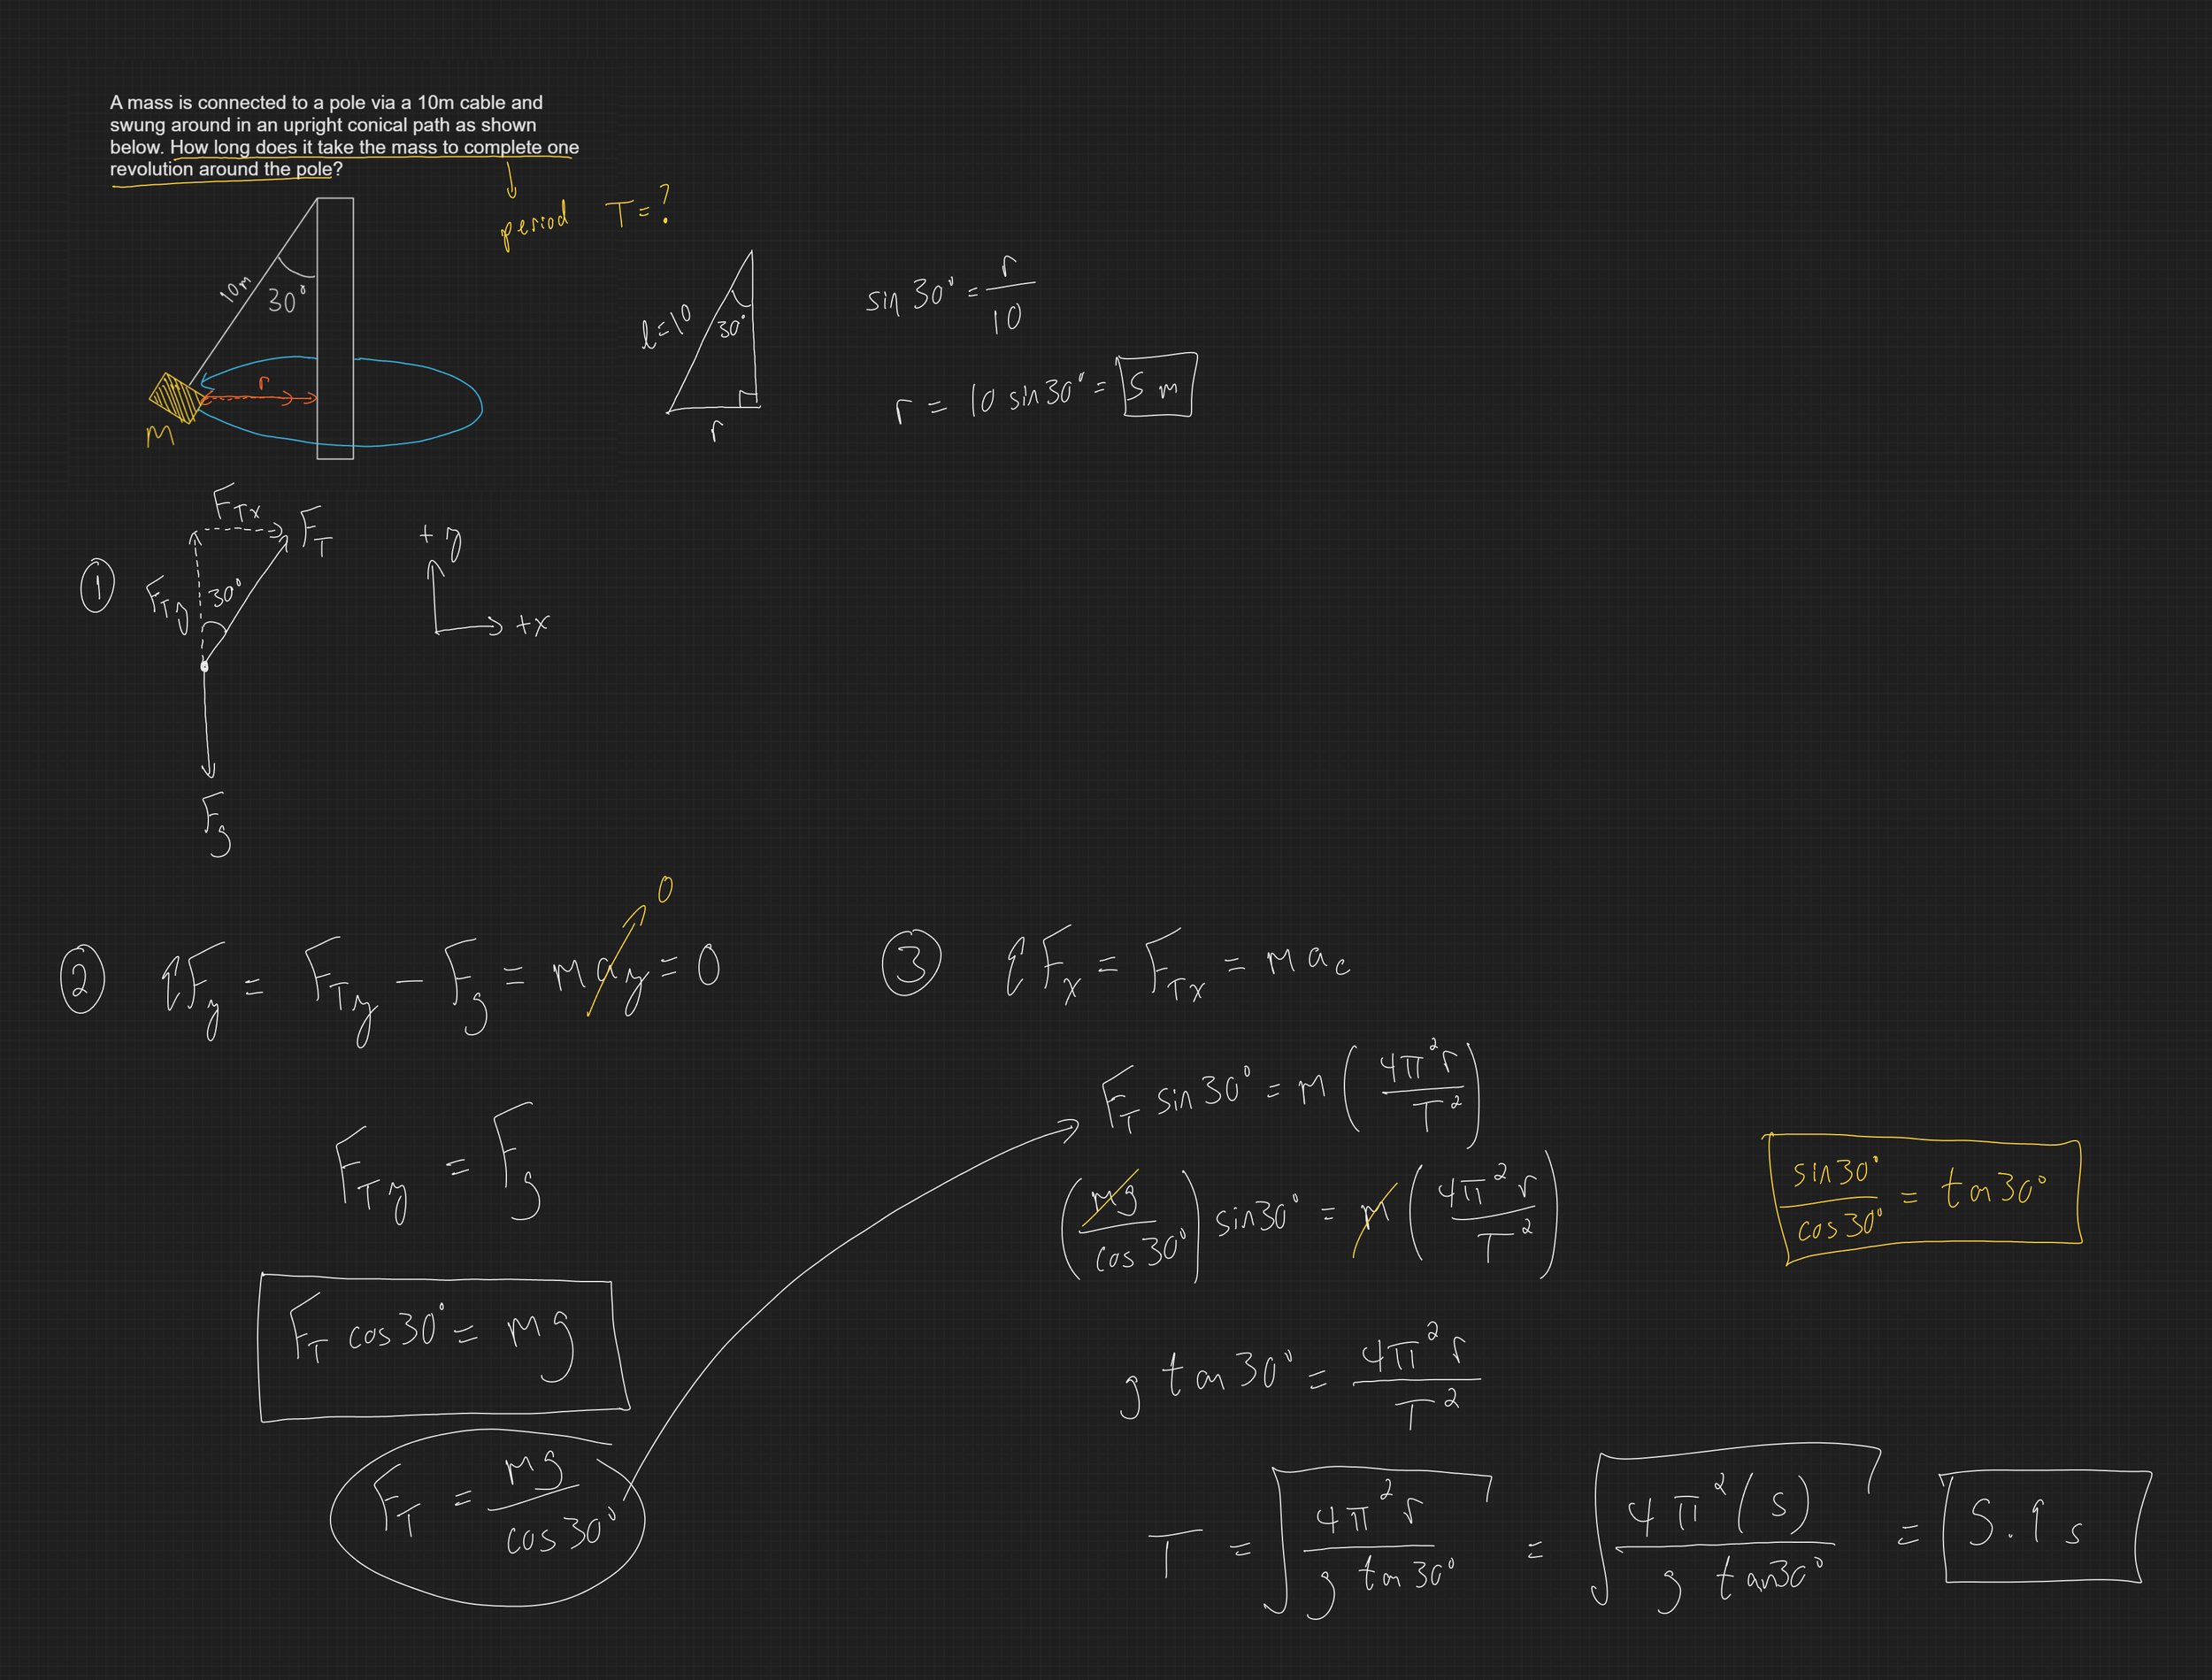 A mass is connected to a pole via a 10m cable and
swung around in an upright conical path as shown
below. How long does it take the mass to complete one
revolution around the pole?
period T = ?
10m
30°
r
m
l = 10
30°
r
sin 30° = r / 10
r = 10 sin 30° = 5 m
①
F_Tx
F_T
F_Ty
30°
F_g
+y
+x
② ΣF_y = F_Ty - F_g = ma_y = 0
0
F_Ty = F_g
F_T cos 30° = mg
F_T = mg / cos 30°
③ ΣF_x = F_Tx = ma_c
F_T sin 30° = m (4π² r / T²)
(mg / cos 30°) sin 30° = m (4π² r / T²)
sin 30° / cos 30° = tan 30°
g tan 30° = 4π² r / T²
T = √(4π² r / g tan 30°) = √(4π² (5) / g tan 30°) = 5.9 s